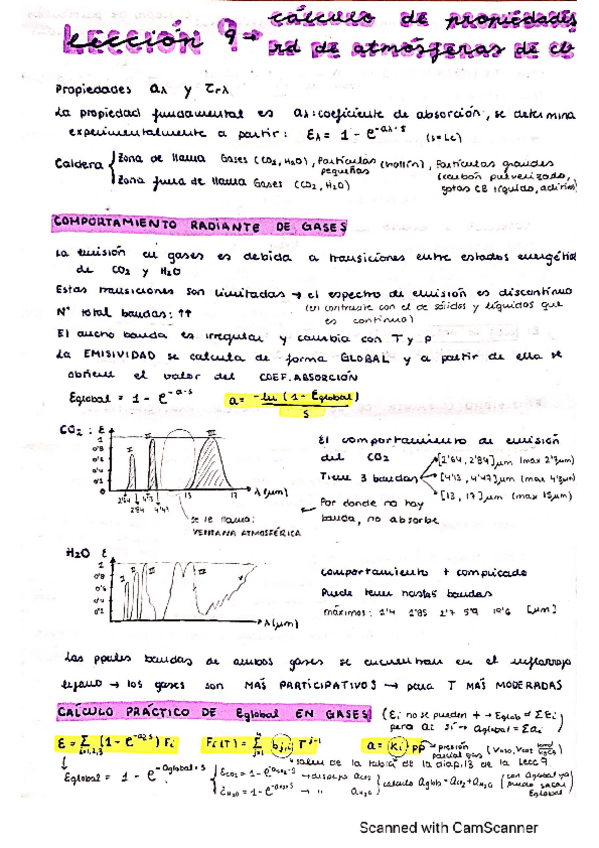 Lección 9→ cálculo de propiedades
rd de atmósferas de cb
Propiedades aλ y τrλ
La propiedad fundamental es aλ: coeficiente de absorción, se determina
experimentalmente a partir: Eλ = 1 - e^-aλ·s (s=Lc)
Caldera { Zona de llama Gases (CO2, H2O), Partículas pequeñas (hollín), Partículas grandes
(carbón pulverizado,
gotas CB líquido, aditivos)
Zona fuera de llama Gases (CO2, H2O)
COMPORTAMIENTO RADIANTE DE GASES
La emisión en gases es debida a transiciones entre estados energéti
de CO2 y H2O
Estas transiciones son limitadas → el espectro de emisión es discontinuo
(en contraste con el de sólidos y líquidos que
es continuo)
Nº total bandas: ↑↑
El ancho banda es irregular y cambia con T y p
La EMISIVIDAD se calcula de forma GLOBAL y a partir de ella se
obtiene el valor del COEF. ABSORCIÓN
Eglobal = 1 - e^-a·s a = -ln (1 - Eglobal) / s
CO2 : E
1
0'8
0'6
0'4
0'2
I II III
2'64 2'84 4'13 4'47 13 17 λ (μm)
se le llama:
VENTANA ATMOSFÉRICA
El comportamiento de emisión
del CO2
Tiene 3 bandas
[2'64, 2'84] μm (max 2'7μm)
[4'13, 4'47] μm (max 4'3μm)
[13, 17] μm (max 15μm)
Por donde no hay
banda, no absorbe
H2O E
1
0'8
0'6
0'4
0'2
λ (μm)
comportamiento + complicado
Puede tener hasta 5 bandas
máximos: 1'4 1'85 2'7 5'9 [μm]
Las ppales bandas de ambos gases se encuentran en el infrarrojo
lejano → los gases son MÁS PARTICIPATIVOS → para T MÁS MODERADAS
CÁLCULO PRÁCTICO DE Eglobal EN GASES (Ei no se pueden + → Eglob ≠ ΣEi)
pero ai sí → aglobal = Σai
E = Σ i=1,2,3 (1 - e^-ai·s) Fi Fi(T) = Σ j=1 bj,i T^j-1 a = Ki pp → presión
parcial gas
salen de la tabla de la diap.13 de la Lecc 9
Eglobal = 1 - e^-aglobal·s
ECO2 = 1 - e → despejo aCO2
EH2O = 1 - e → " aH2O
calculo aglob = aCO2 + aH2O
(con aglobal ya
puedo sacar
Eglobal)
Scanned with CamScanner